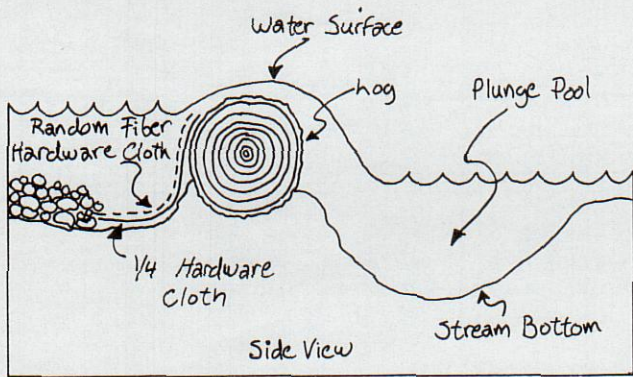 Water Surface
Log
Plunge Pool
Random Fiber
Hardware Cloth
1/4 Hardware
Cloth
Stream Bottom
Side View